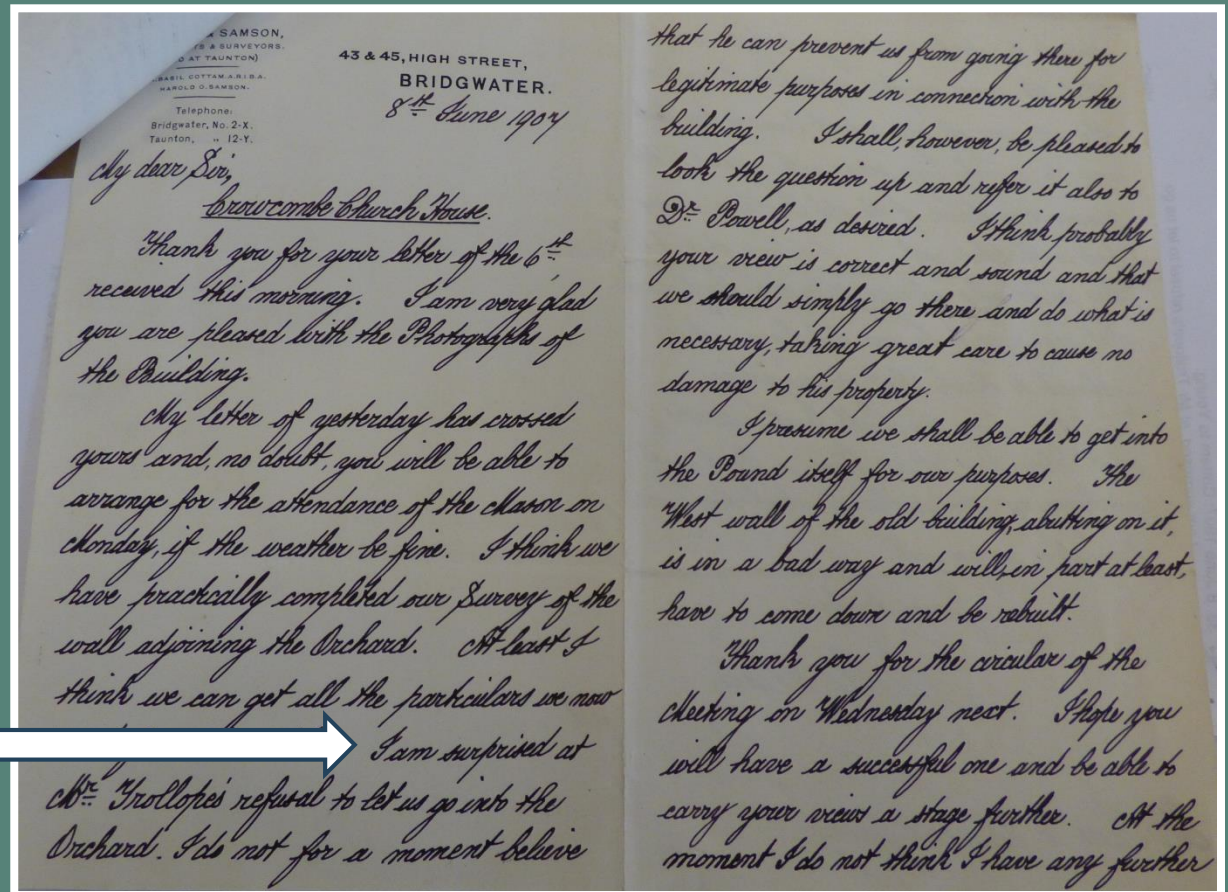 & SAMSON,
TS & SURVEYORS.
O AT TAUNTON)
BASIL COTTAM.A.R.I.B.A.
HAROLD O.SAMSON.
Telephone:
Bridgwater, No. 2-X.
Taunton, " 12-Y.
43 & 45, HIGH STREET,
BRIDGWATER.
8th June 1907
My dear Sir,
Crowcombe Church House.
Thank you for your letter of the 6th,
received this morning. I am very glad
you are pleased with the Photographs of
the Building.
My letter of yesterday has crossed
yours and, no doubt, you will be able to
arrange for the attendance of the Mason on
Monday, if the weather be fine. I think we
have practically completed our Survey of the
wall adjoining the Orchard. At least I
think we can get all the particulars we now
I am surprised at
Mr Trollope's refusal to let us go into the
Orchard. I do not for a moment believe
that he can prevent us from going there for
legitimate purposes in connection with the
building. I shall, however, be pleased to
look the question up and refer it also to
Dr Powell, as desired. I think probably
your view is correct and sound and that
we should simply go there and do what is
necessary, taking great care to cause no
damage to his property.
I presume we shall be able to get into
the Pound itself for our purposes. The
West wall of the old building, abutting on it,
is in a bad way and will, in part at least,
have to come down and be rebuilt.
Thank you for the circular of the
Meeting on Wednesday next. I hope you
will have a successful one and be able to
carry your views a stage further. At the
moment I do not think I have any further